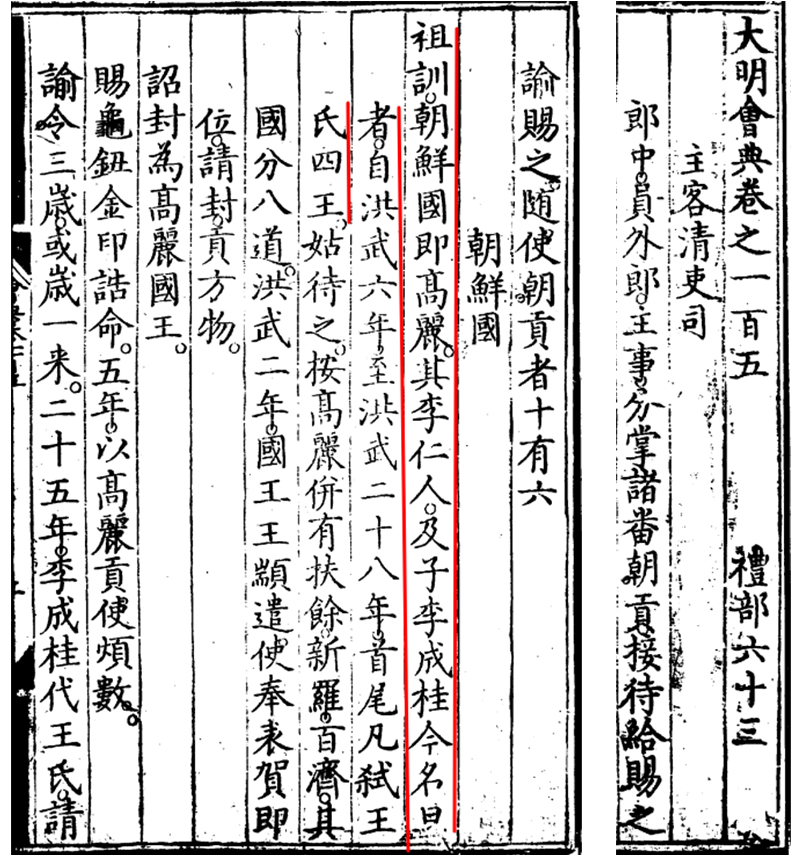 大明會典卷之一百五 禮部六十三
主客清吏司
郎中。員外郎。主事。分掌諸番朝貢接待給賜之
諭賜之。随使朝貢者十有六
朝鮮國
祖訓。朝鮮國即高麗。其李仁人。及子李成桂今名旦
者。自洪武六年。至洪武二十八年。首尾凡弑王
氏四王。姑待之。按高麗併有扶餘。新羅。百濟。其
國分八道。洪武二年。國王王顓遣使奉表賀即
位。請封。貢方物。
詔封為高麗國王。
賜龜鈕金印誥命。五年。以高麗貢使煩數。
諭令三歲。或歲一来。二十五年。李成桂代王氏。請